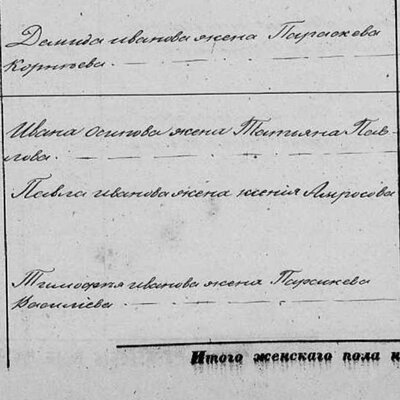 Демида иванова жена Параскева
Корнѣева.
Ивана осипова жена Татияна Пав-
лова.
Павла иванова жена ксенія Амросова
Тимофѣя иванова жена Параскева
Василіева
Итого женскаго пола